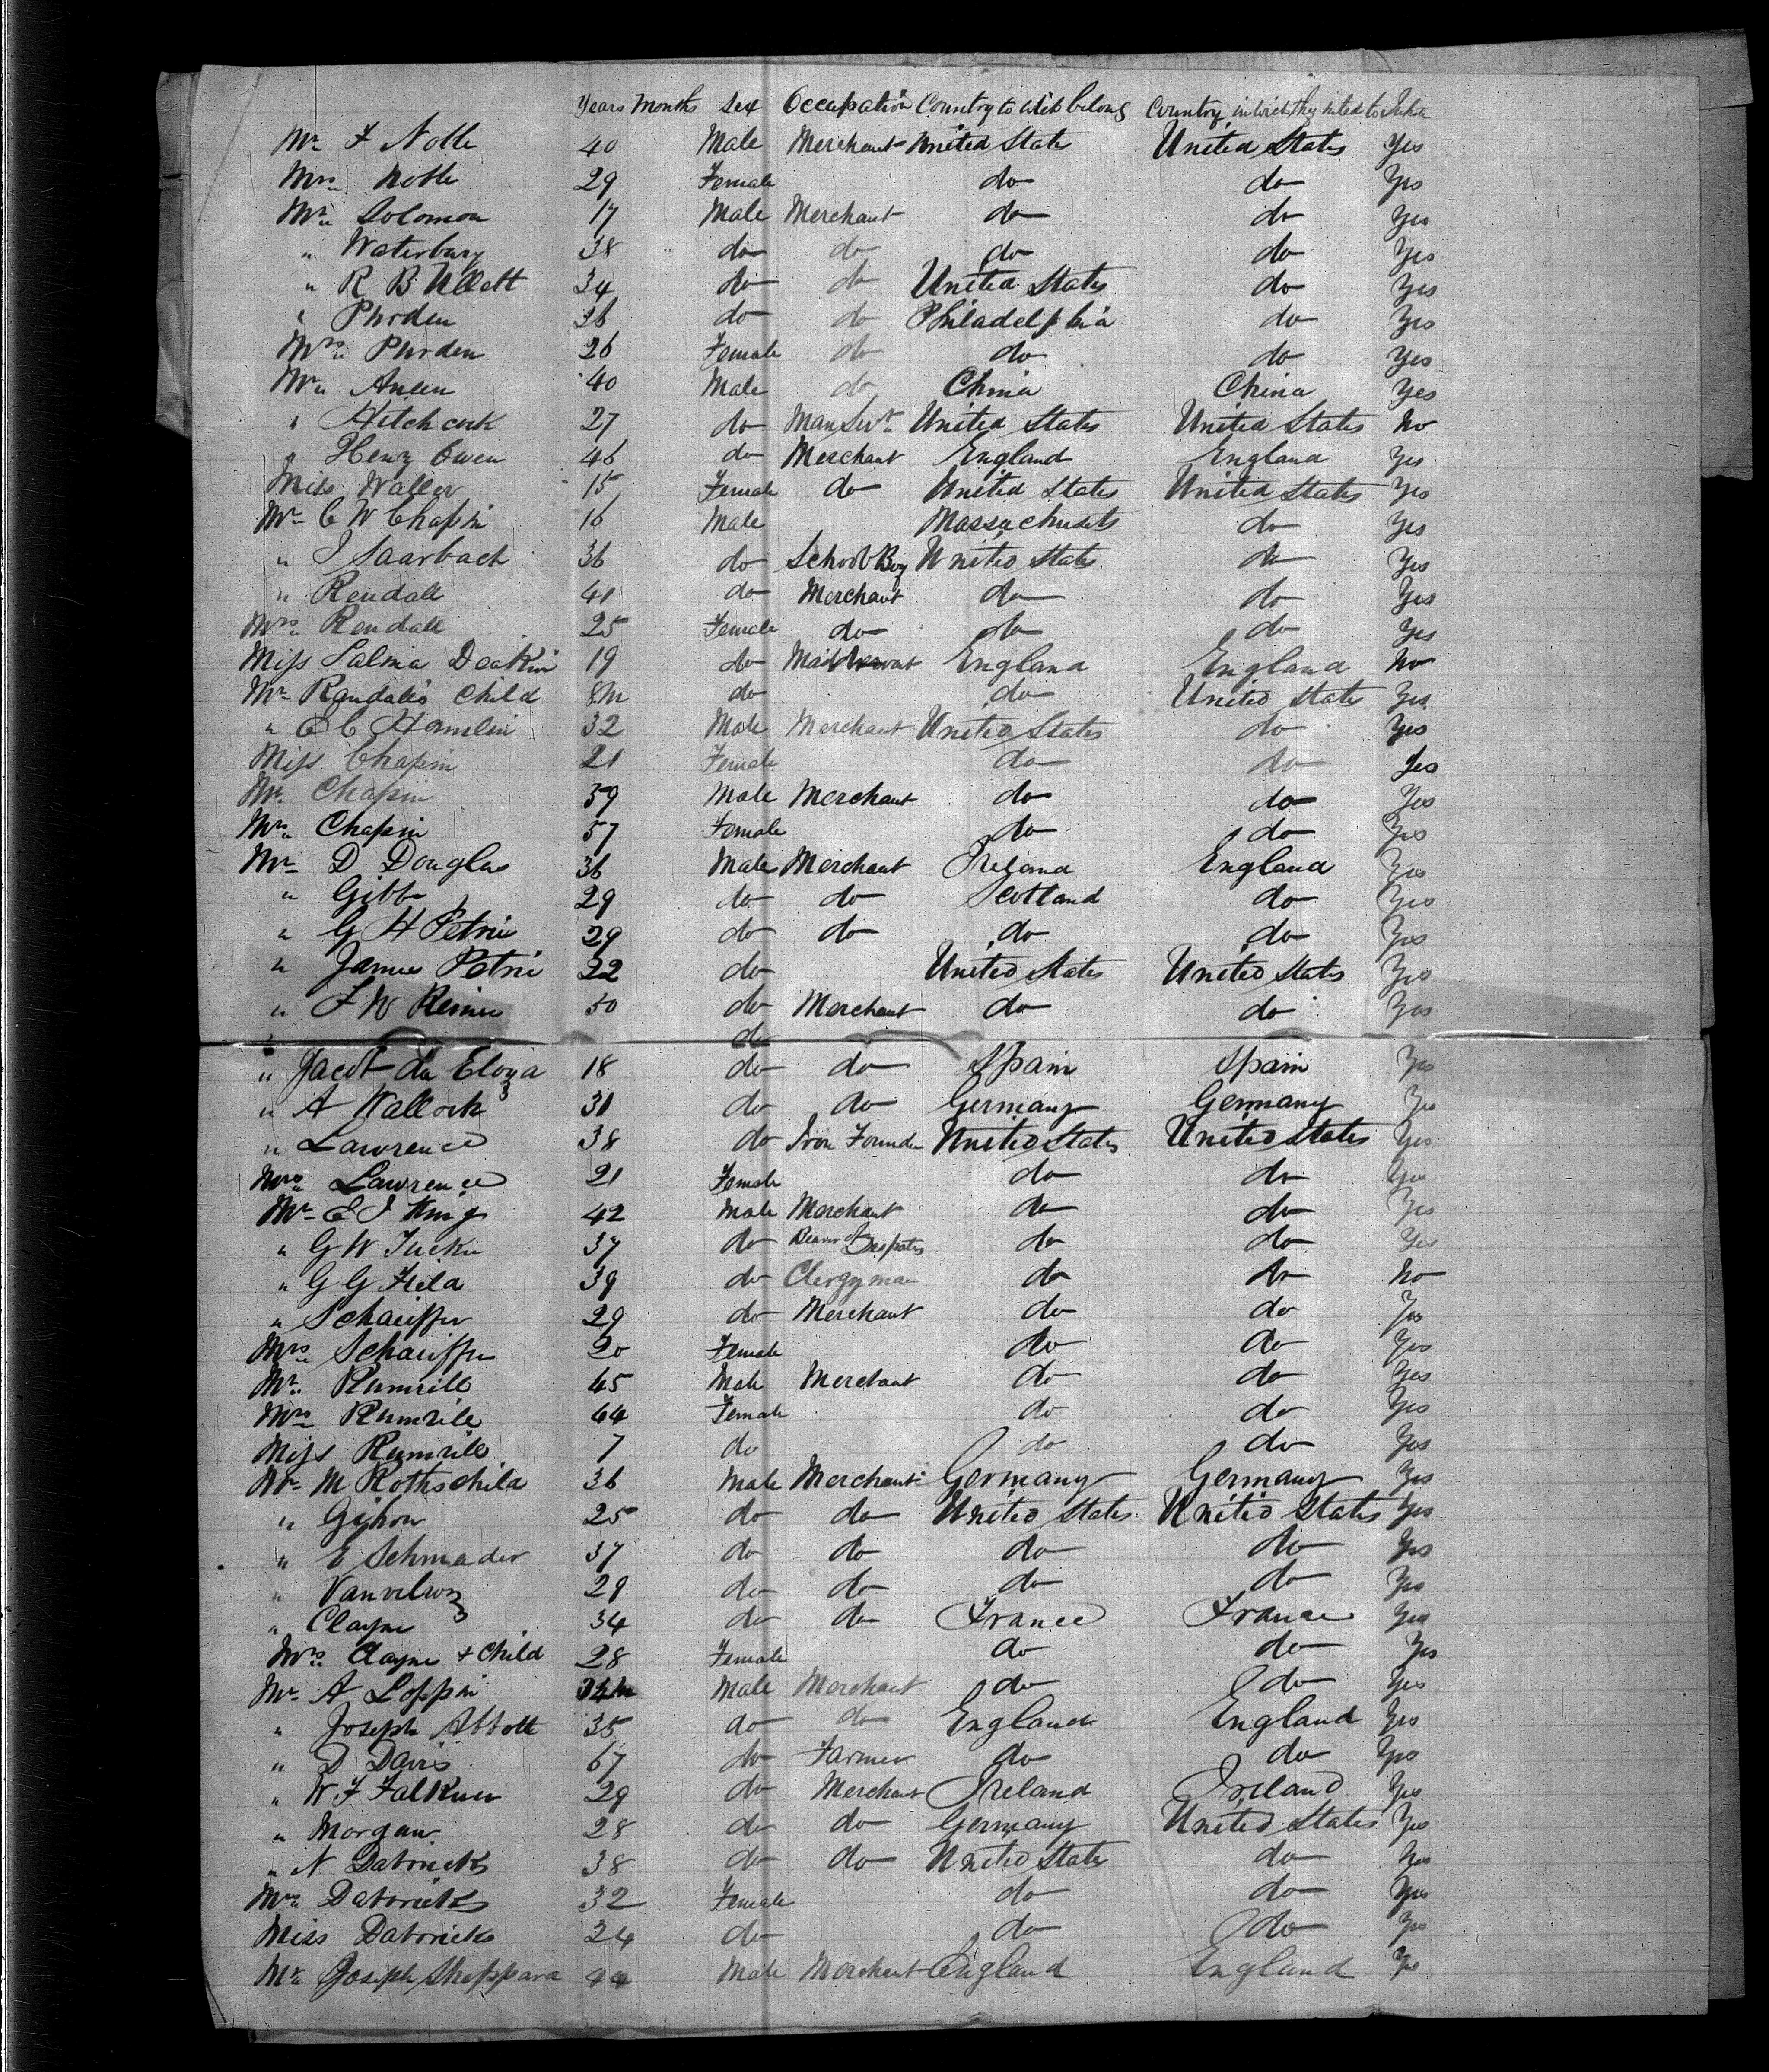 Years Months Sex Occupation Country to belong Country in wich they to
Mr F Noble 40 Male Merchant United States United States Yes
Mrs Noble 29 Female do do Yes
Mr Solomon 17 Male Merchant do do Yes
" Waterbury 38 do do do do Yes
" R B Ullett 34 do do United States do Yes
" Purden 36 do do Philadelphia do Yes
Mrs Purden 26 Female do do do Yes
Mr 40 Male do China China Yes
" Hitchcock 27 do Man Servt United States United States No
" Henry Owen 46 do Merchant England England Yes
Miss Waller 15 Female do United States United States Yes
Mr C W Chapin 16 Male Massachusets do Yes
" J Saarbach 36 do School Boy United States do Yes
" Rendall 41 do Merchant do do Yes
Mrs Rendall 25 Female do do do Yes
Miss Salina Deakin 19 do England England No
Mr Randall's Child 8m do do United States Yes
" E C Hamlin 32 Male Merchant United States do Yes
Miss Chapin 21 Female do do Yes
Mr Chapin 59 Male Merchant do do Yes
Mrs Chapin 57 Female do do Yes
Mr D Douglas 36 Male Merchant Ireland England Yes
" Gibb 29 do do Scotland do Yes
" G H Petrie 29 do do do do Yes
" James Petrie 22 do United States United States Yes
" F W 50 do Merchant do do Yes
" do
" Jacot da 18 do do Spain Spain Yes
" A Wallock 31 do do Germany Germany Yes
" Lawrence 38 do Iron Founder United States United States Yes
Mrs Lawrence 21 Female do do Yes
Mr E J King 42 Male Merchant do do Yes
" G W Tucker 37 do Bearer of do do Yes
" G G Field 39 do Clergyman do do No
" Schaeiffer 29 do Merchant do do Yes
Mrs Schaeiffer 20 Female do do Yes
Mr Rumrill 45 Male Merchant do do Yes
Mrs Rumrill 44 Female do do Yes
Miss Rumrill 7 do do do Yes
Mr M Rothschild 36 Male Merchant Germany Germany Yes
" Gihon 25 do do United States United States Yes
" E Schmader 37 do do do do Yes
" 29 do do do do Yes
" Clayne 34 do do France France Yes
Mrs Clayne + Child 28 Female do do Yes
Mr A Loppin Male Merchant do do Yes
" Joseph Abbott 35 do do England England Yes
" D Davis 67 do Farmer do do Yes
" W F Falkner 29 do Merchant Ireland Ireland Yes
" Morgan 28 do do Germany United States Yes
" N 38 do do United States do Yes
Mrs 32 Female do do Yes
Miss 24 do do do Yes
Mr Joseph Sheppard 44 Male Merchant England England Yes